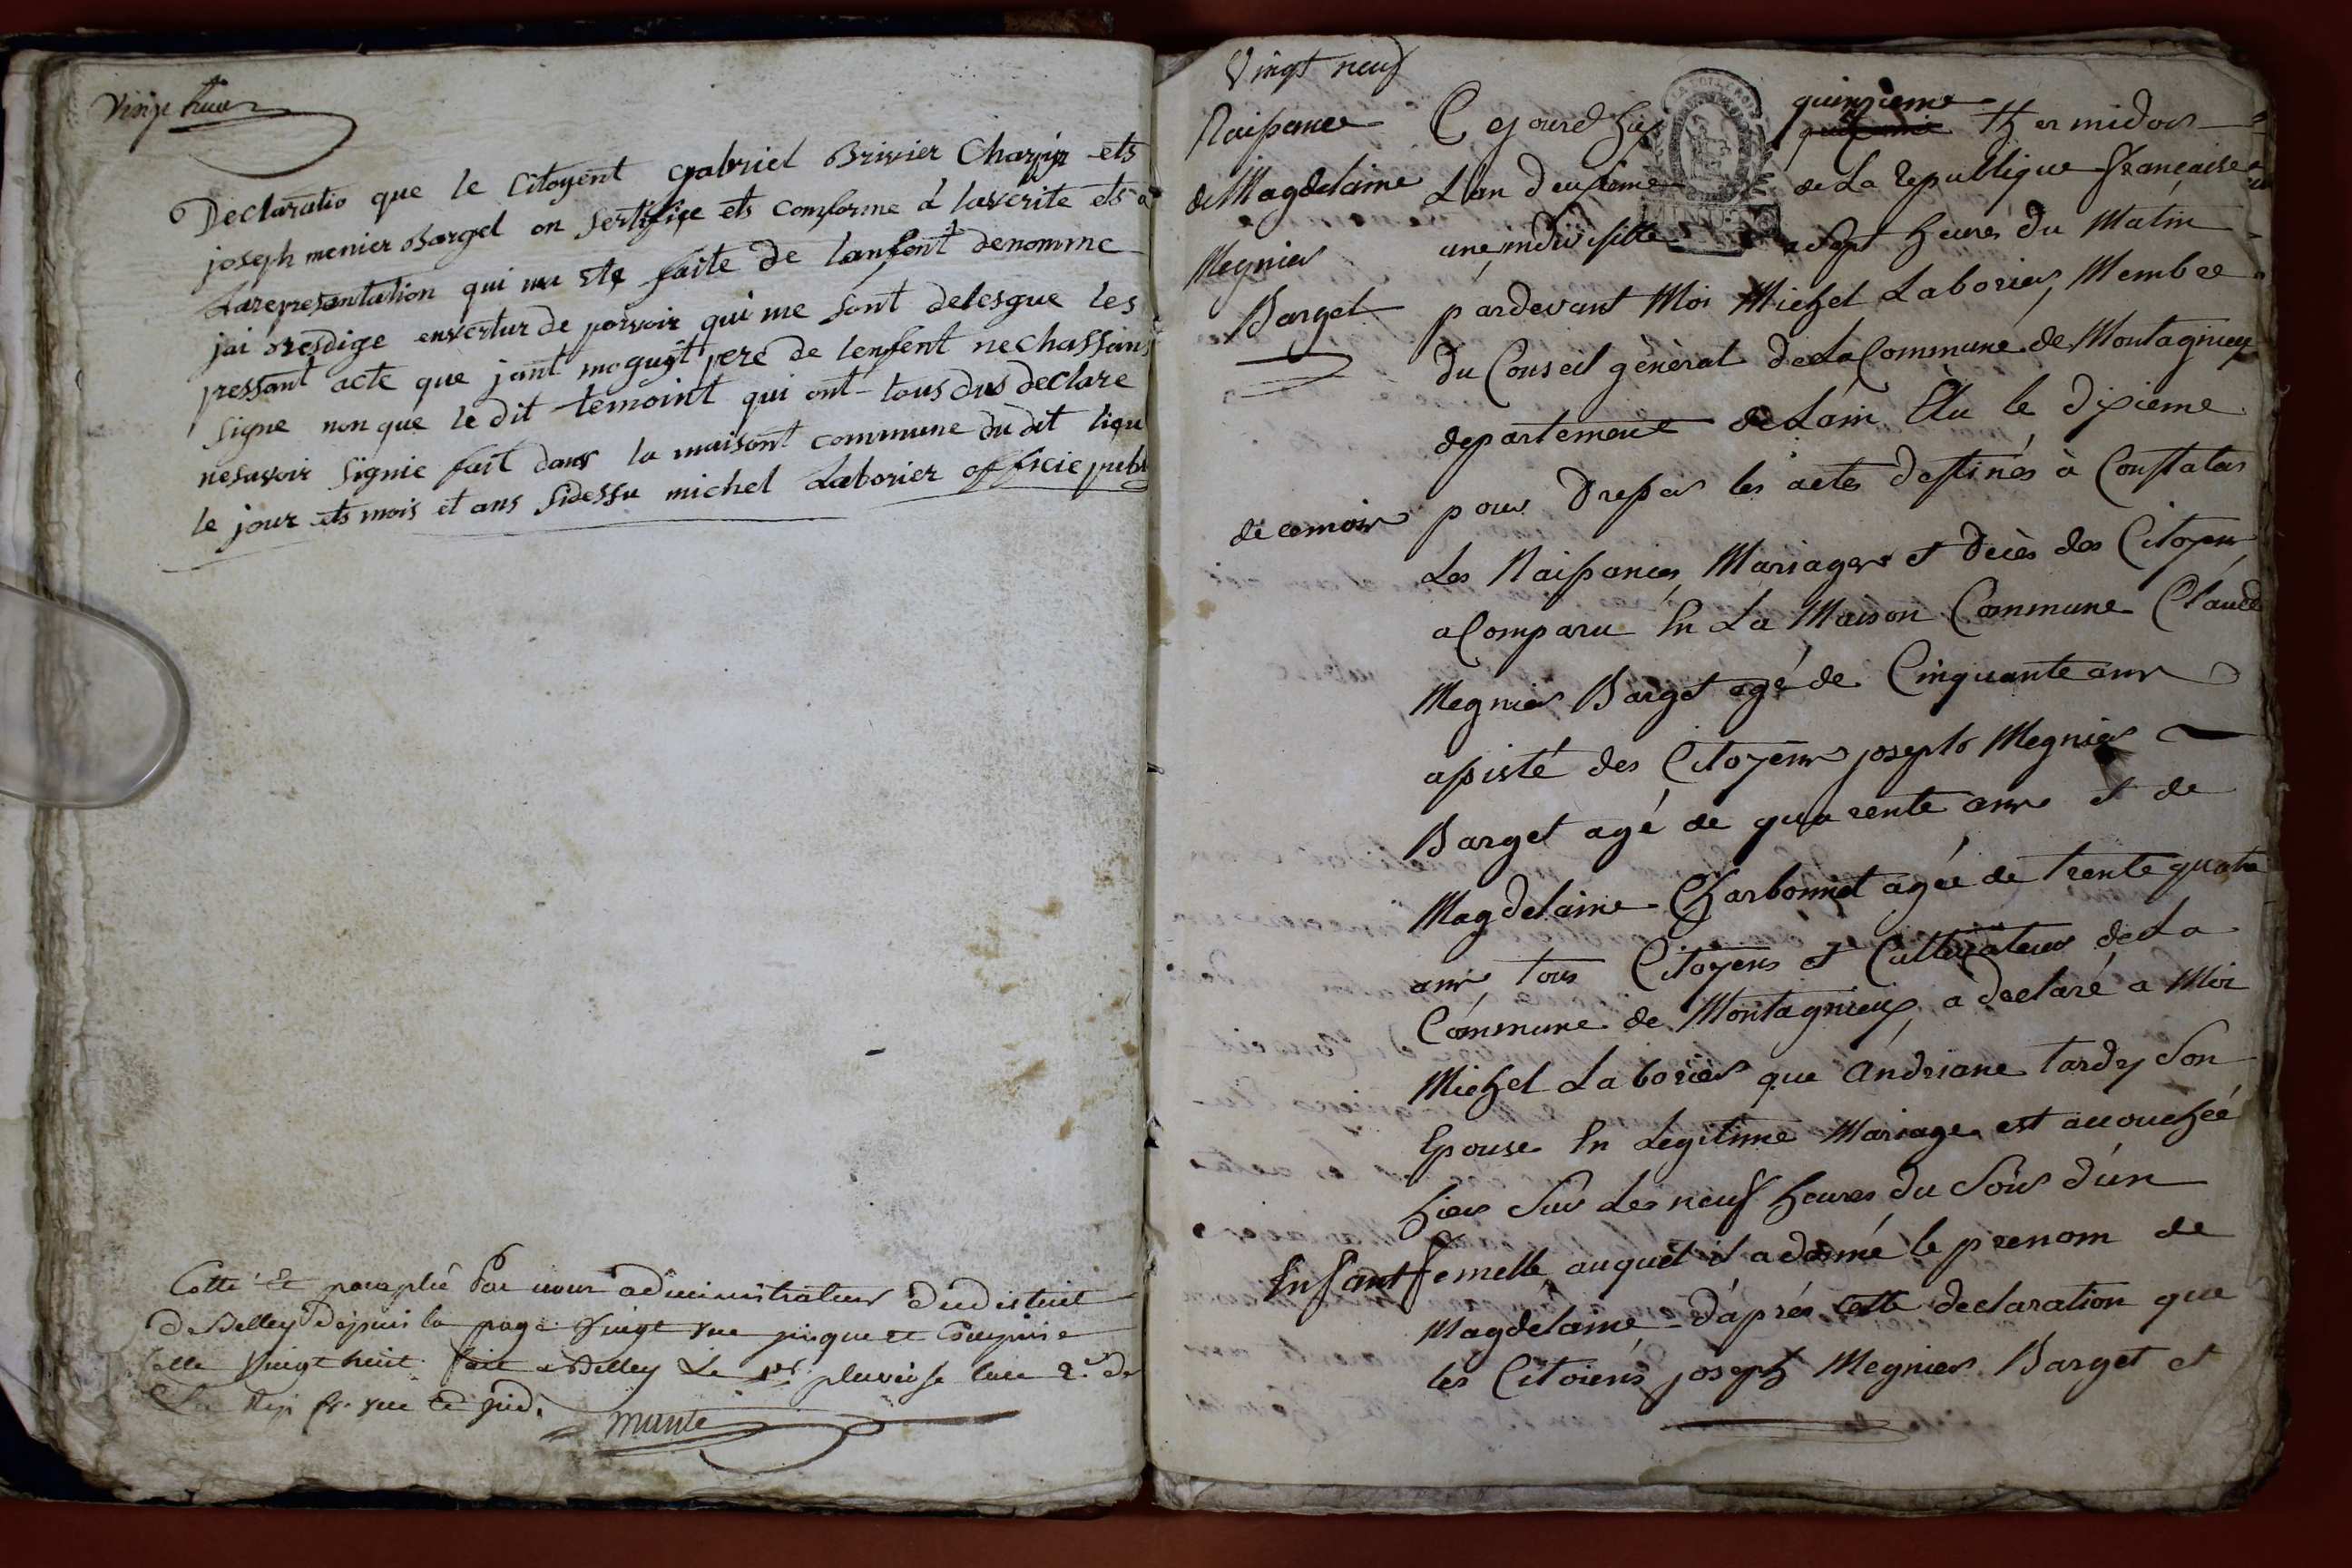 Vingt huit
Declaratio que le Citoyent gabriel Brivier Charpip ets
joseph menier Barget on sertifige ets comforme a laverite ets a
larepresantation qui ma ete faite de lanfent denomme
jai resdige envertur de porvoir qui me sont delesgue les
pressant acte que jant moguyt pere de lenfent ne
signe non que le dit temoint qui ont tous dus declare
nesavoir signie fait dans la maisont commune du dit liqu
le jour ets mois et ans sidessu michel Laborier officie publ
Cotté Et paraphé Par nous administrateur dudistrict
De Belley Depuis la page Vingt une jusque et Compris
celle Vingt huit fait a Belley Le 1er pluviose lan 2e de
La Rep fr. une et jnd.
munte
Vingt neuf
Naissance
de Magdelaine
Megnier
Barget
Cejourdhuy quinzieme thermidor
Lan deuxieme de La Republique française
une indivisible a Sept heures du Matin
pardevant Moi Michel Laborier, Membre
du Conseil général de La Commune de Montagnieux
departement de Lain Elu le dixieme
de ce mois pour dresser les actes destinés à Constater
Les Naissances, Mariages et Décès des Citoyens
a Comparu En La Maison Commune Claude
Megnier Barget agé de Cinquante ans
assisté des Citoyens joseph Megnier
Barget agé de quarente ans et de
Magdelaine Charbonnet agée de trente quatre
ans, tous Citoyens et Cultivateurs de La
Commune de Montagnieux, a declaré a Moi
Michel Laborier que Andriane Tardy Son
Epouse En Legitime Mariage est accouchée
hier Sur Les neuf heures du Soir d'un
Enfant femelle auquel il a donné le prenom de
Magdelaine d'aprés cette declaration que
les Citoiens joseph Megnier Barget et